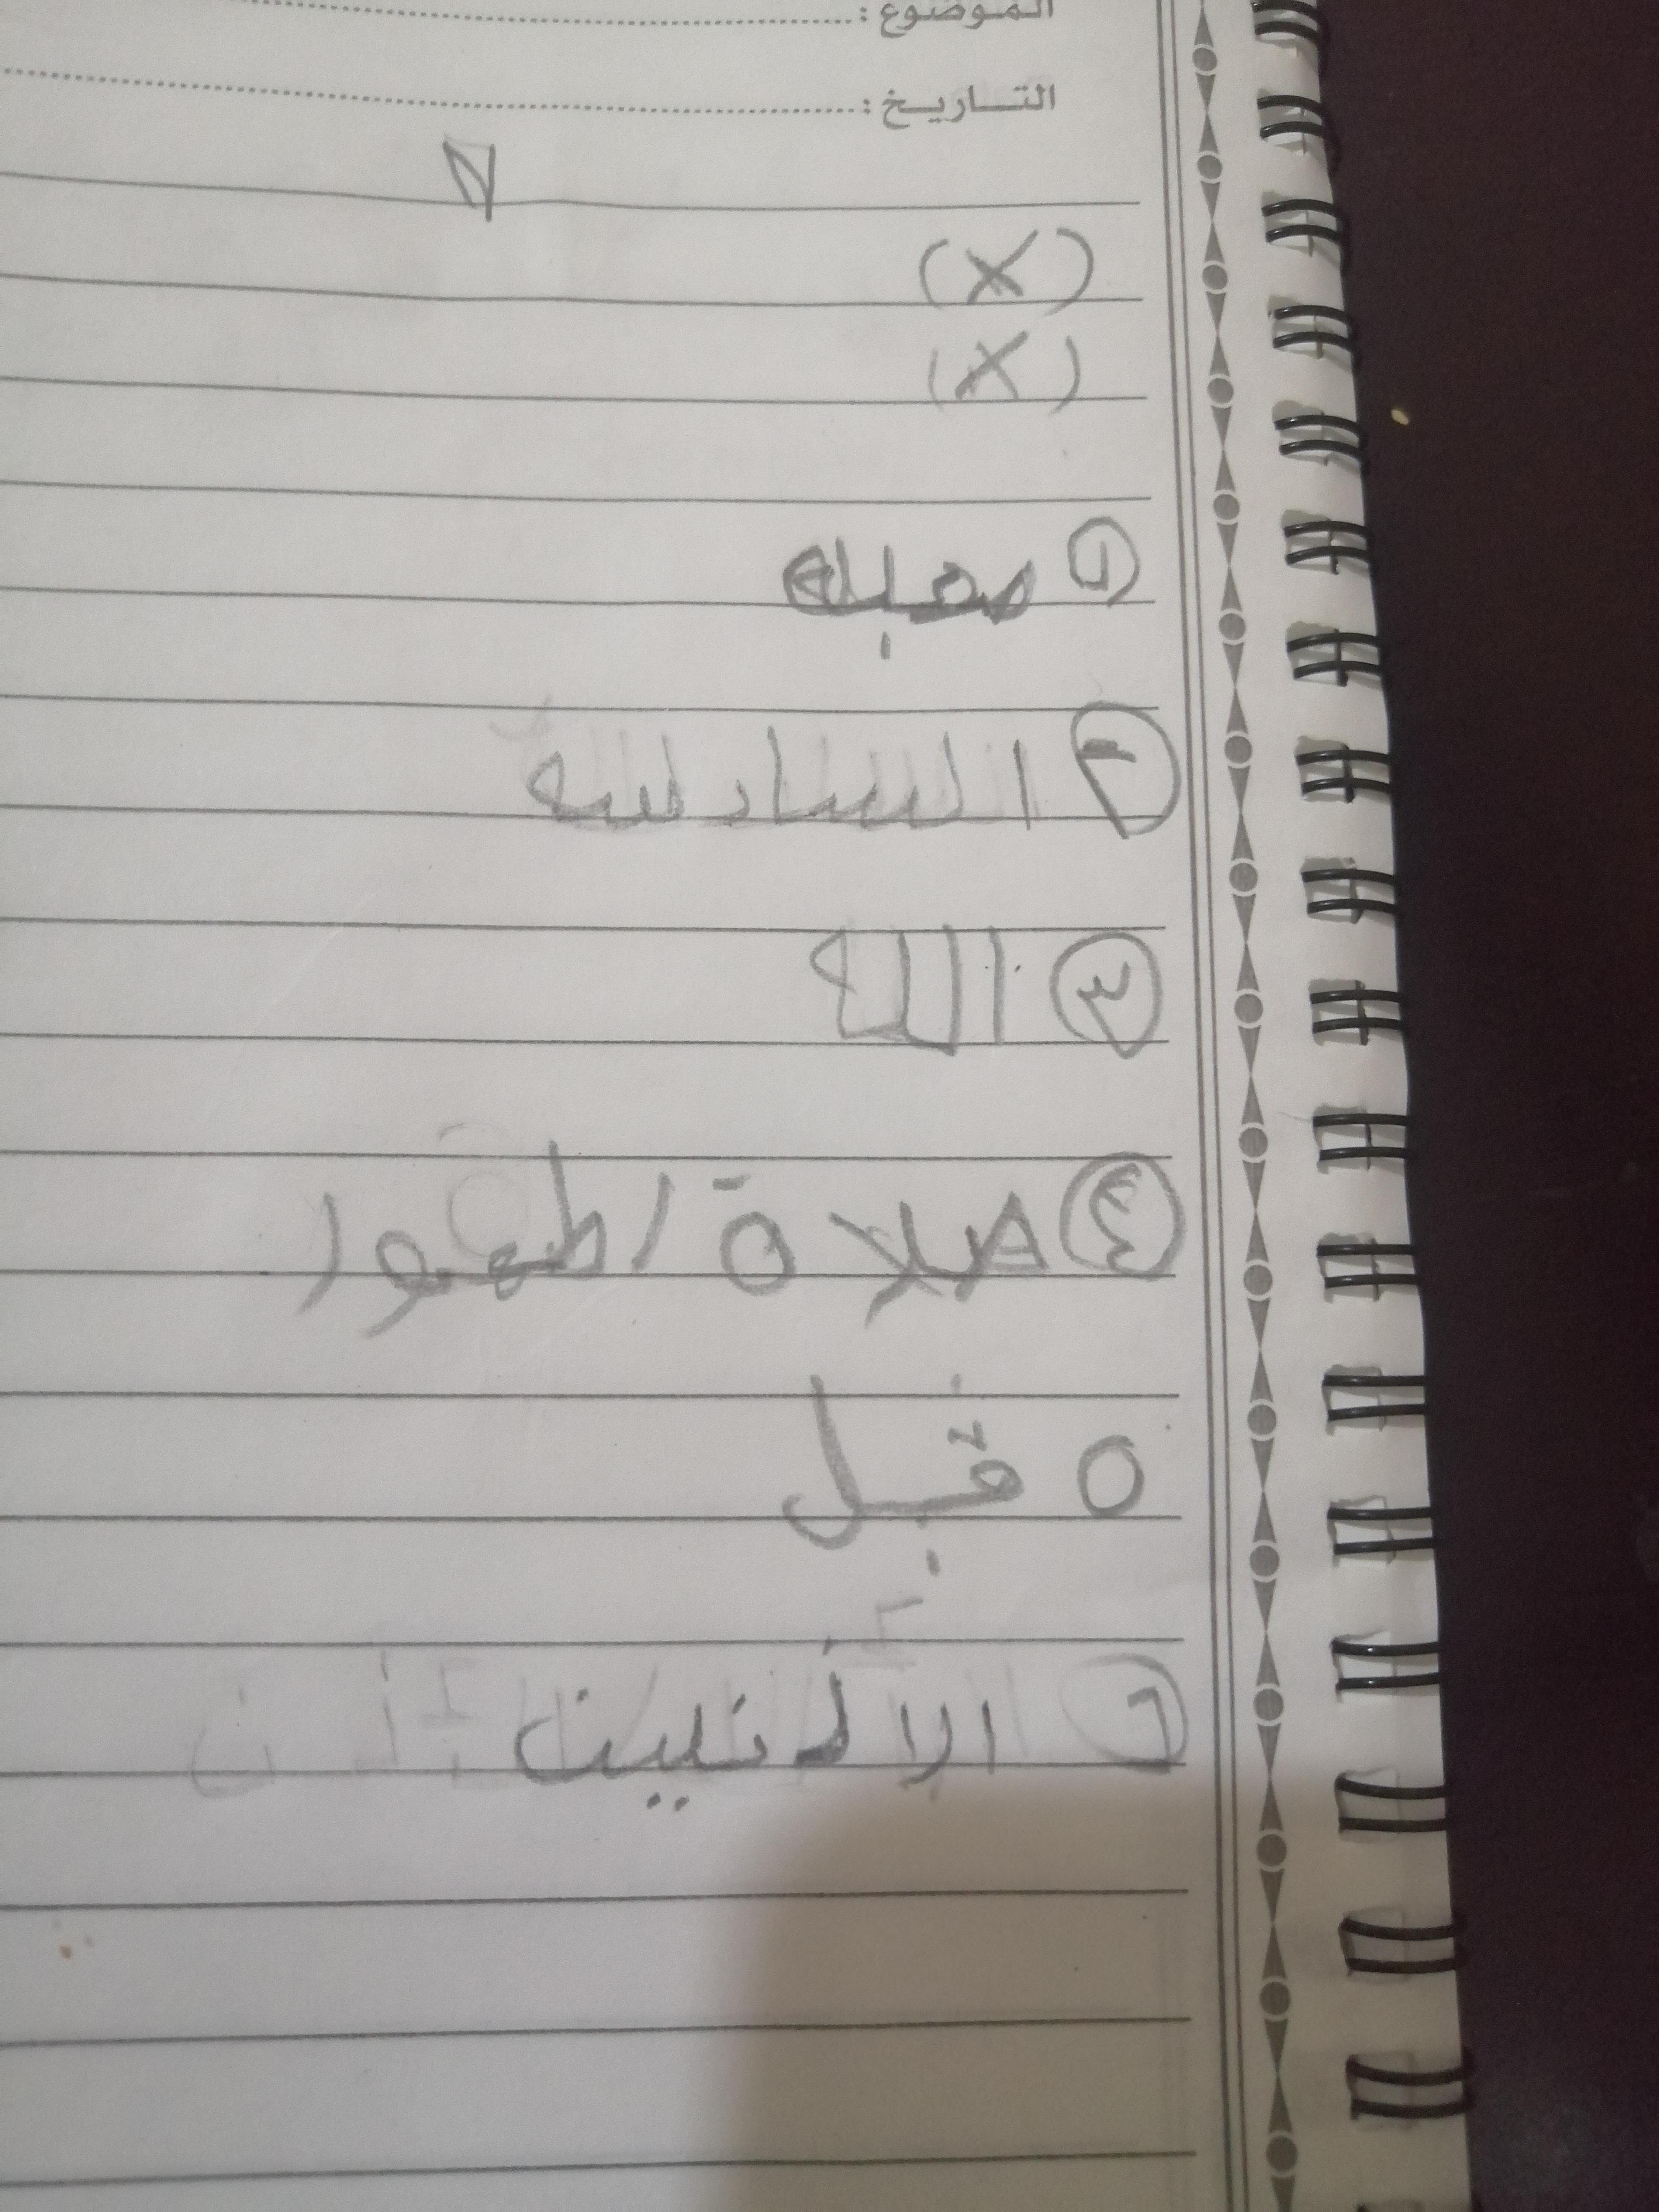 الموضوع :
التاريخ :
(X)
(X)
١ صعبه
٢ السادسه
٣ الله
٤ صلاة اطهور
٥ قبل
٦ الاثنين